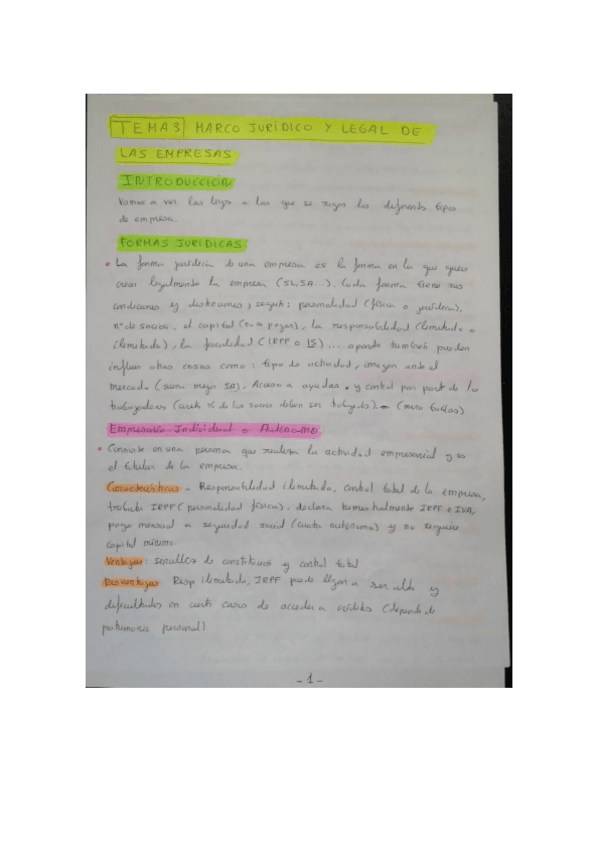 TEMA3 MARCO JURÍDICO Y LEGAL DE
LAS EMPRESAS
INTRODUCCIÓN
Vamos a ver las leyes a las que se rigen los diferentes tipos
de empresa.
FORMAS JURÍDICAS
La forma jurídica de una empresa es la forma en la que quiero
crear legalmente la empresa (SL, SA...). Cada forma tiene sus
condiciones y distinciones, según: personalidad (física o jurídica),
nº de socios, el capital , la responsabilidad (limitada o
ilimitada), la fiscalidad (IRPF o IS)... aparte también pueden
influir otras cosas como: tipo de actividad, imagen ante el
mercado (suena mejor SA), Acceso a ayudas y control por parte de los
trabajadores (cierto % de los socios deben ser trabajado).
Empresario Individual o Autónomo.
Consiste en una persona que realiza la actividad empresarial y es
el titular de la empresa.
Características: Responsabilidad ilimitada, control total de la empresa,
tributa IRPF (personalidad física), declara trimestralmente IRPF e IVA,
pago mensual a seguridad social (cuota autónomo) y no requiere
capital mínimo.
Ventajas: sencillez de constitución y control total
Desventajas: Resp ilimitada, IRPF puede llegar a ser alto y
dificultades en cierto casos de acceder a créditos (depende de
patrimonio personal)
- 1 -